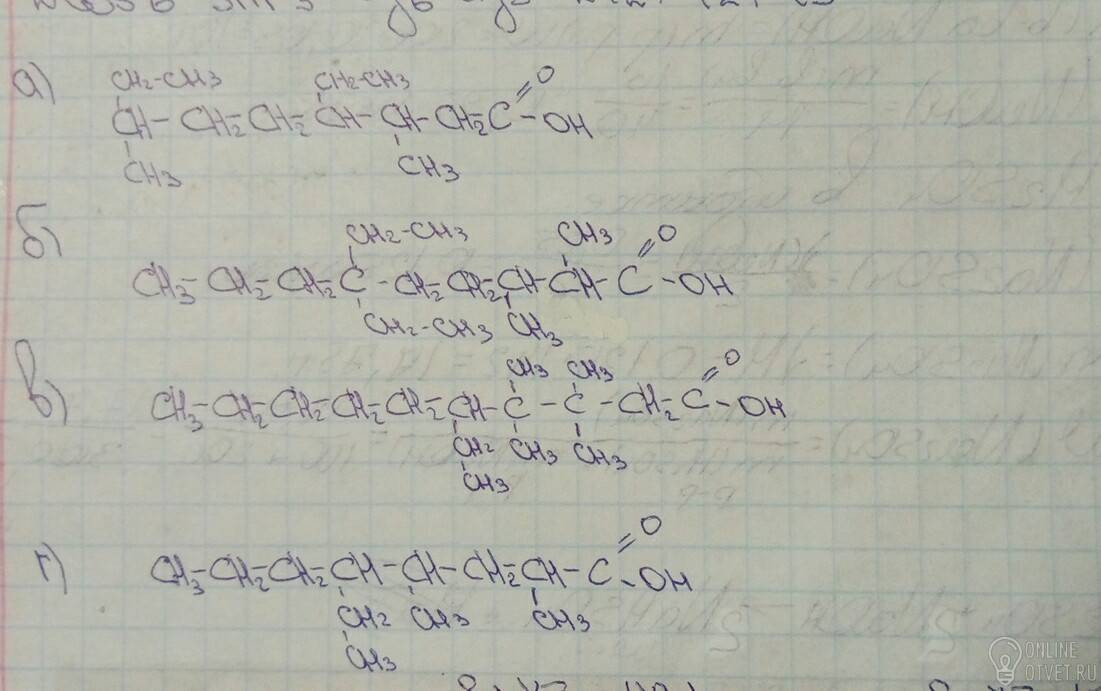 а)
CH₂-CH₃ CH₂-CH₃ O
CH-CH₂-CH₂-CH-CH-CH₂-C-OH
CH₃ CH₃
б)
CH₂-CH₃ CH₃ O
CH₃-CH₂-CH₂-C-CH₂-CH₂-CH-CH-C-OH
CH₂-CH₃ CH₃
в)
CH₃ CH₃ O
CH₃-CH₂-CH₂-CH₂-CH₂-CH-C-C-CH₂-C-OH
CH₂ CH₃ CH₃
CH₃
г)
O
CH₃-CH₂-CH₂-CH-CH-CH₂-CH-C-OH
CH₂ CH₃ CH₃
CH₃
ONLINE
OTVET.RU